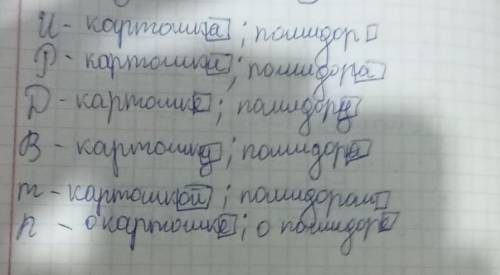 И - картошка; помидор
Р - картошки; помидора
Д - картошке; помидору
В - картошку; помидора
Т - картошкой; помидором
П - о картошке; о помидоре